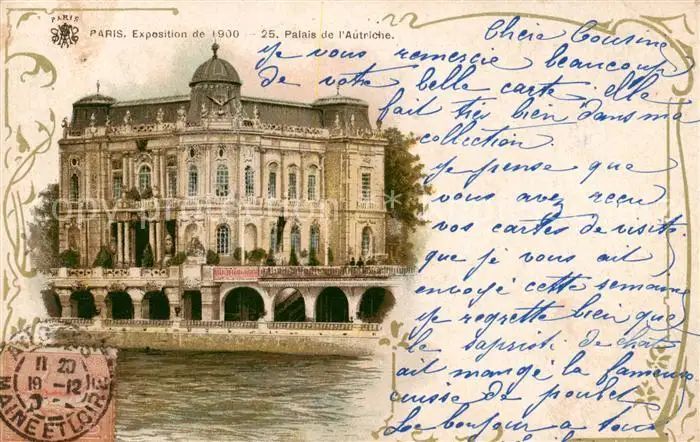 PARIS
PARIS. Exposition de 1900 — 25. Palais de l'Autriche.
Chère Cousine
Je vous remercie beaucoup
de votre belle carte, elle
fait très bien dans ma
collection.
Je pense que
vous avez reçu
vos cartes de visite
que je vous ait
envoyé cette semaine
Je regrette bien que
le sapristi de chat
ait mangé la fameuse
cuisse de poulet
Le bonjour a tous
19 12
MAINE ET LOIRE